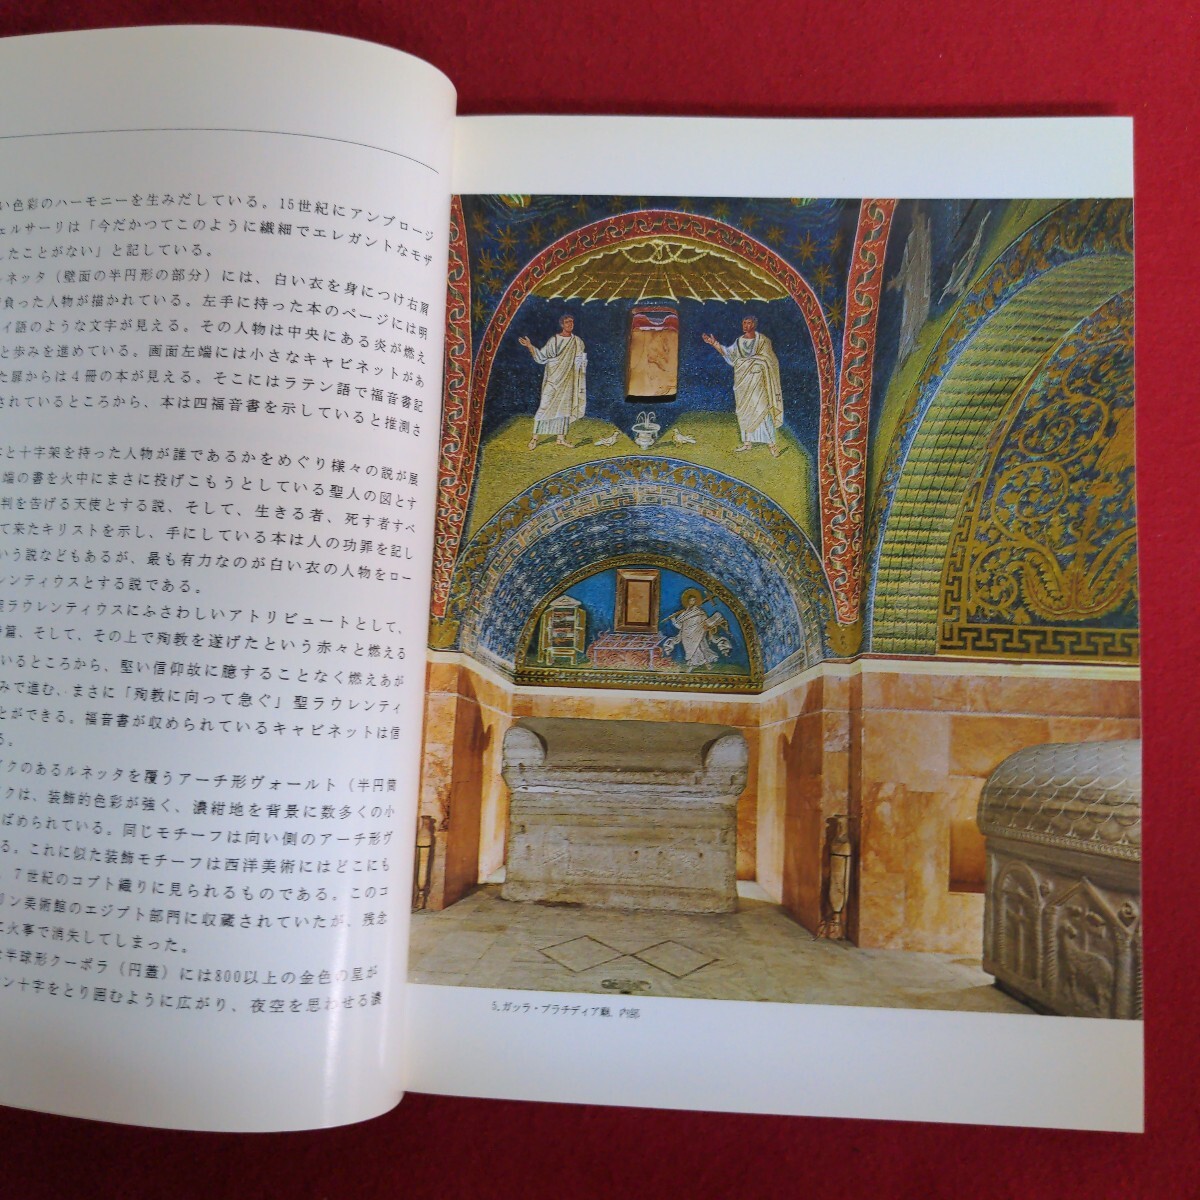 い色彩のハーモニーを生みだしている。15世紀にアンブロージ
ェルサーリは「今だかつてこのように繊細でエレガントなモザ
したことがない」と記している。
ルネッタ（壁面の半円形の部分）には、白い衣を身につけ右肩
負った人物が描かれている。左手に持った本のページには明
イ語のような文字が見える。その人物は中央にある炎が燃え
と歩みを進めている。画面左端には小さなキャビネットがあ
た扉からは4冊の本が見える。そこにはラテン語で福音書記
されているところから、本は四福音書を示していると推測さ
と十字架を持った人物が誰であるかをめぐり様々の説が展
端の書を火中にまさに投げこもうとしている聖人の図とす
判を告げる天使とする説、そして、生きる者、死す者すべ
て来たキリストを示し、手にしている本は人の功罪を記し
いう説などもあるが、最も有力なのが白い衣の人物をロー
レンティウスとする説である。
聖ラウレンティウスにふさわしいアトリビュートとして、
篇、そして、その上で殉教を遂げたという赤々と燃える
いるところから、堅い信仰故に臆することなく燃えあが
みで進む、まさに「殉教に向って急ぐ」聖ラウレンティ
とができる。福音書が収められているキャビネットは信
る。
イクのあるルネッタを覆うアーチ形ヴォールト（半円筒
イクは、装飾的色彩が強く、濃紺地を背景に数多くの小
ばめられている。同じモチーフは向い側のアーチ形ヴ
る。これに似た装飾モチーフは西洋美術にはどこにも
、7世紀のコプト織りに見られるものである。このコ
リン美術館のエジプト部門に収蔵されていたが、残念
に火事で消失してしまった。
半球形クーポラ（円蓋）には800以上の金色の星が
ン十字をとり囲むように広がり、夜空を思わせる濃
5．ガッラ・プラチディア廟、内部